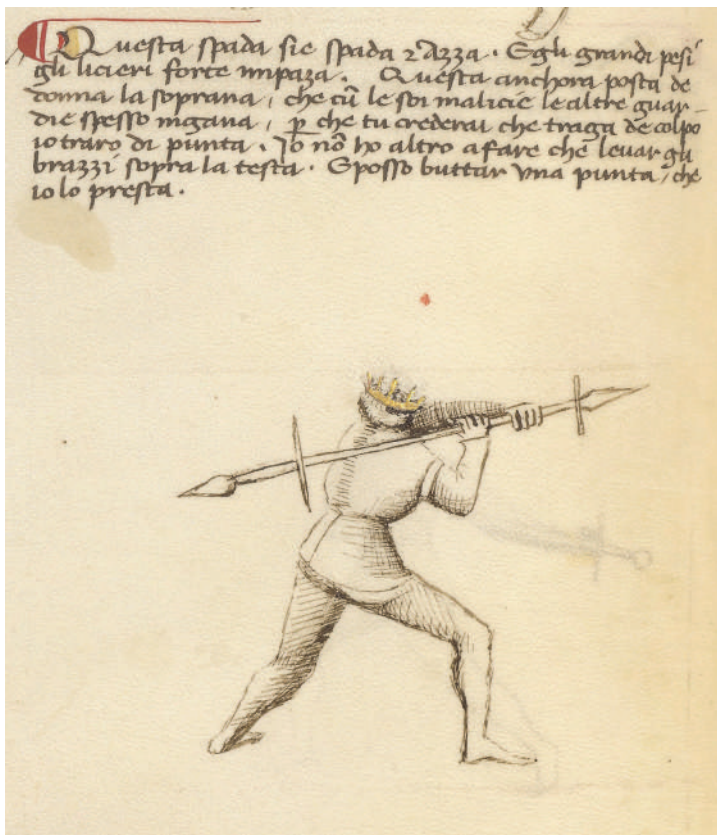 Questa spada sie spada e azza. E gli grandi pesi
gli licieri forte impaza. Questa anchora posta de
donna la soprana, che cū le soi malicie le altre guar-
die spesso ingana, ꝑ che tu crederai che traga de colpo
io traro di punta. Io nō ho altro a fare che levar gli
brazzi sopra la testa. E posso buttar una punta che
io lo presta.